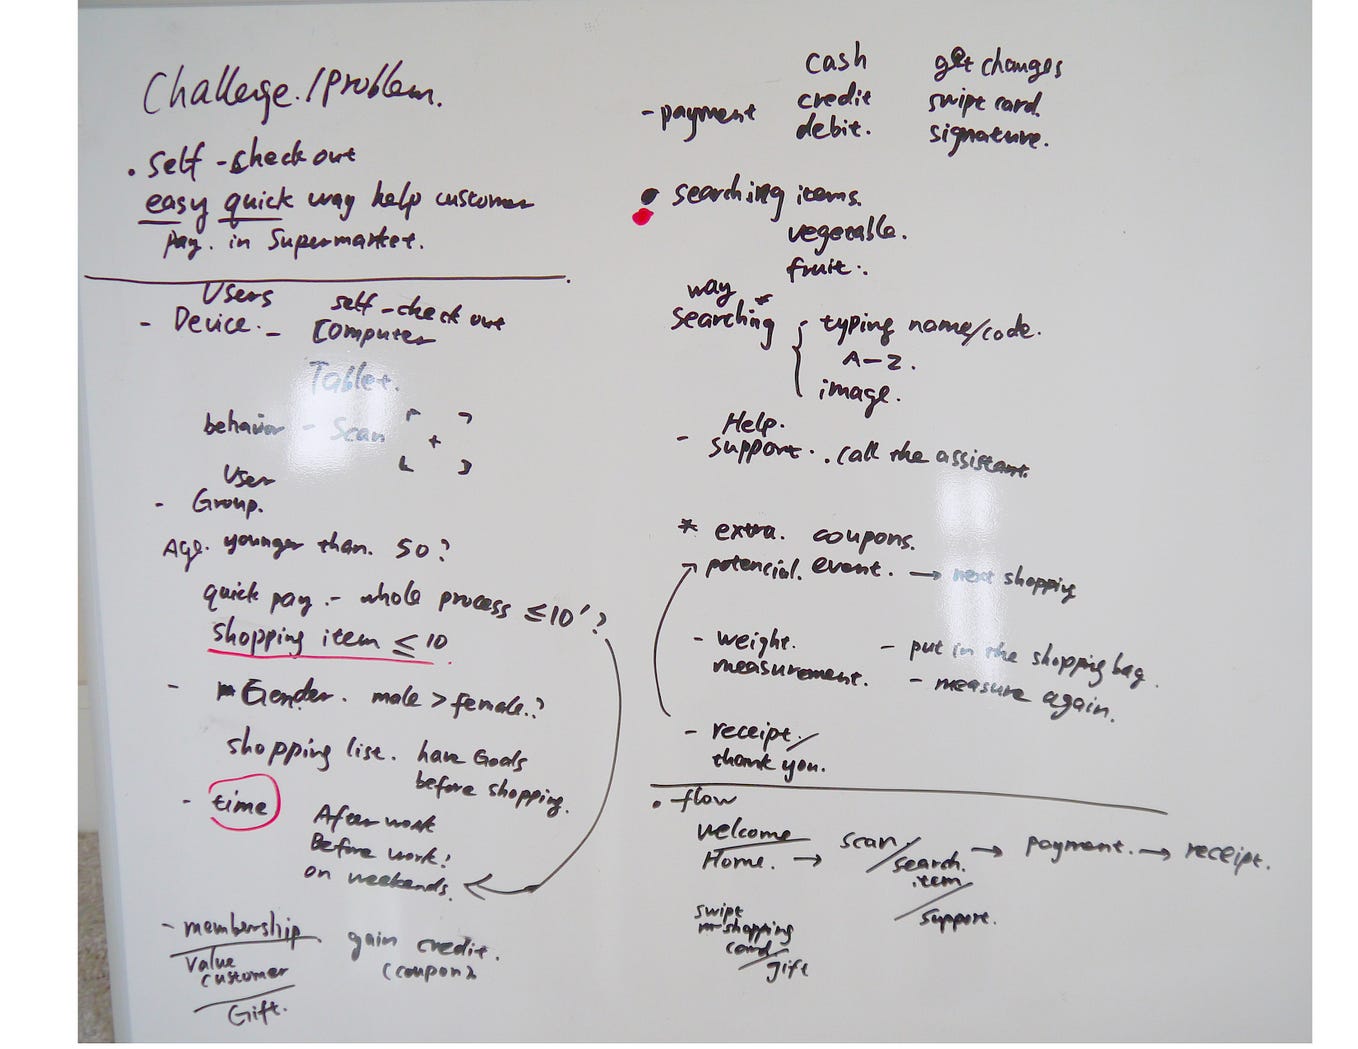 Challenge./Problem.
. Self - check out
easy quick way help customer
pay. in Supermarket.
Users
- Device. - self - check out
Computer
Tablet.
behavior - Scan
User
- Group.
Age. younger than. 50?
quick pay. - whole process ≤10'?
shopping item ≤ 10
- Gender. male > female.?
shopping list. have Goals
before shopping.
- time
After work
Before work!
on weekends.
- membership
Value
customer
Gift.
gain credit.
(coupon)
- payment
cash get changes
credit swipt card.
debit. signature.
• searching items.
vegetable.
fruit..
way *
searching - typing name/code.
A-Z.
image.
Help.
- support. . call the assistant.
* extra. coupons.
potencial. event. → next shopping
- weight.
measurement.
- put in the shopping bag.
- measure again.
- receipt./
thank you.
. flow
welcome
Home. → scan/
search.
item
/ support. → payment. → receipt.
swipt
shopping
card/
gift